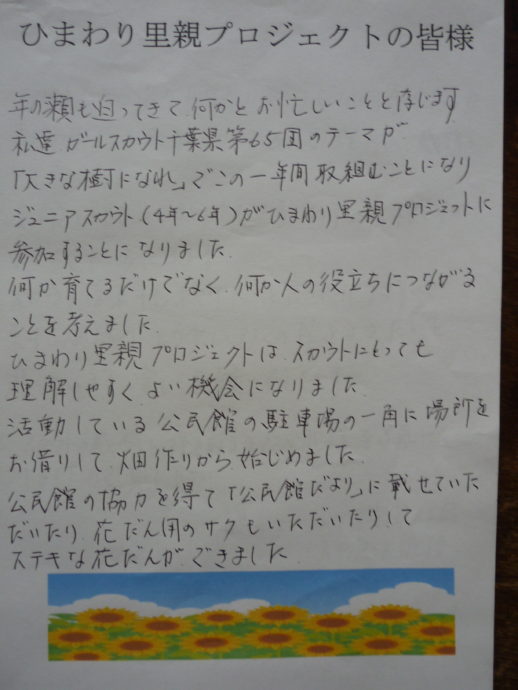 ひまわり里親プロジェクトの皆様
年の瀬も迫ってきて、何かとお忙しいことと存じます
私達、ガールスカウト千葉県第65団のテーマが
「大きな樹になれ」でこの一年間取組むことになり
ジュニアスカウト(4年～6年)がひまわり里親プロジェクトに
参加することになりました。
何か育てるだけでなく、何か人の役立ちにつながる
ことを考えました。
ひまわり里親プロジェクトは、スカウトにとっても
理解しやすく、よい機会になりました。
活動している公民館の駐車場の一角に場所を
お借りして、畑作りから始じめました。
公民館の協力を得て「公民館だより」に載せていた
だいたり、花だん用のサクもいただいたりして
ステキな花だんができました。